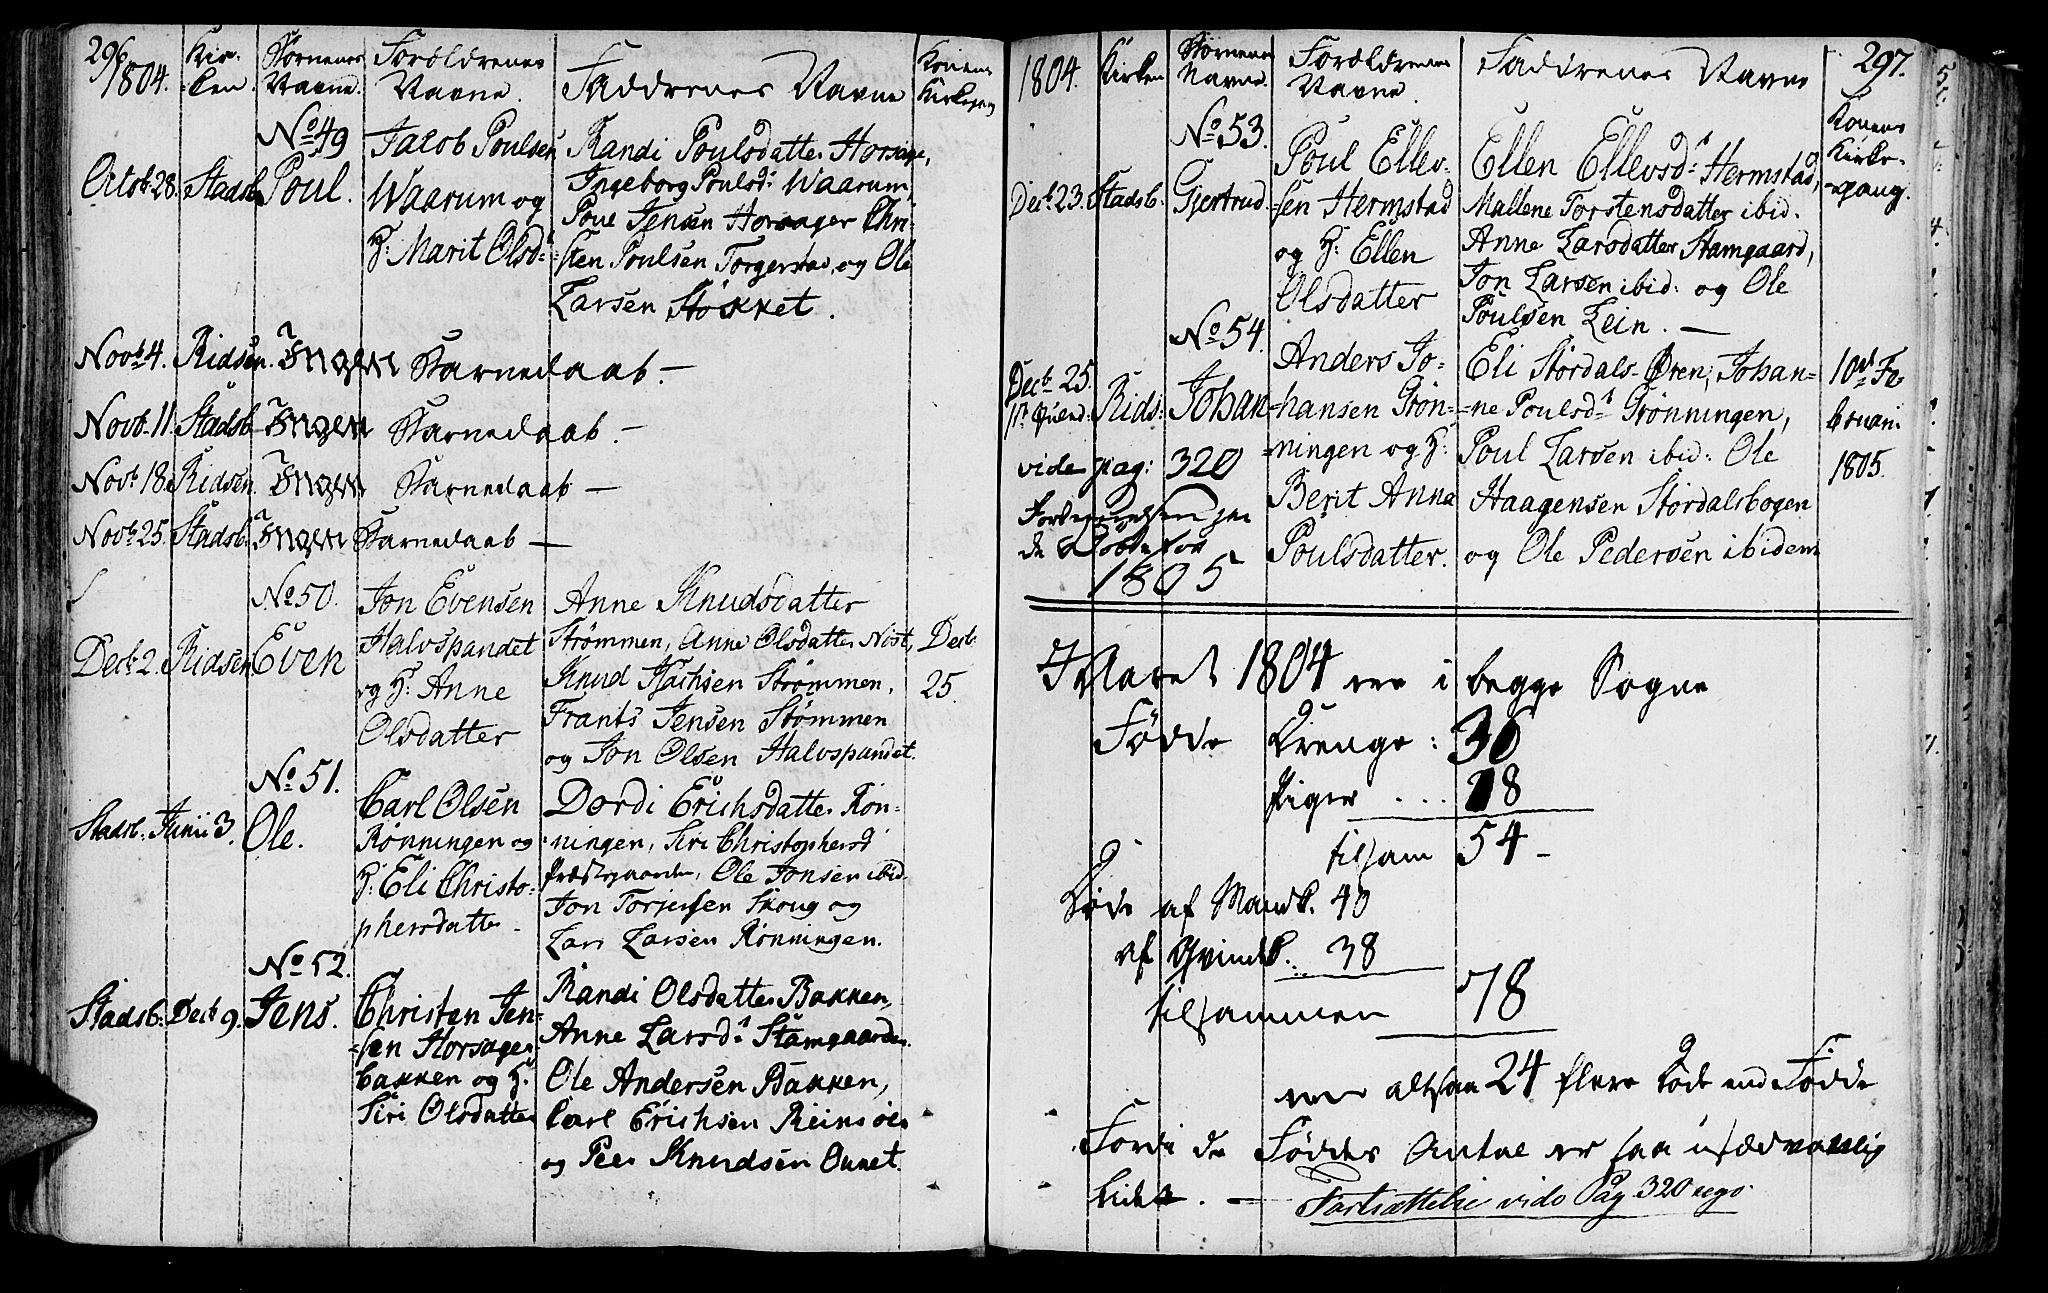 296
1804.
Kir-
-ken.
Børnenes
Navne.
Forældrenes
Navne.
Faddrenes Navne
Konens
Kirkegang
No 49
Octob. 28. Stadsb. Poul.
Jacob Poulsen
Waarum og
H: Marit Olsd.
Randi Poulsdatter Horsage,
Ingeborg Poulsd: Waarum,
Poul Jensen Horsager Chri-
sten Poulsen Torgerstad, og Ole
Larsen Støkket.
Novb. 4. Ridsen. Ingen Barnedaab. —
Novb. 11. Stadsb. Ingen Barnedaab. —
Novb. 18. Ridsen. Ingen Barnedaab —
Novb. 25. Stadsb. Ingen Barnedaab —
No 50.
Decb. 2. Ridsen Even
Jon Evensen
Halvspandet
og H: Anne
Olsdatter
Anne Knudsdatter
Strømmen, Anne Olsdatter Nøst,
Knud Isachsen Strømmen,
Frants Jensen Strømmen
og Jon Olsen Halvspandet.
Decb.
25.
No 51.
Stadsb. Junii 3. Ole.
Carl Olsen
Rønningen og
H: Eli Christo-
phersdatter
Dordi Erichsdatter Røn-
ningen, Siri Christophersd
Præstegaarden, Ole Jonsen ibid.
Jon Torjersen Skoug og
Lars Larsen Rønningen.
No 52.
Stadsb. Decb 9. Jens.
Christen Jen-
sen Horsager
bakken og H:
Siri Olsdatter
Randi Olsdatter Bakken,
Anne Larsd: Stamgaarden
Ole Andersen Bakken,
Carl Erichsen Reinsøen
og Peer Knudsen
1804.
Kirken
Børnenes
Navne.
Forældrenes
Navne.
Faddrenes Navne
297.
Konens
Kirke-
-gang.
No 53.
Decb. 23. Stadsb. Gjertrud.
Poul Ellev-
sen Hermstad
og H: Ellen
Olsdatter
Ellen Ellevsd: Hermstad,
Mallene Torstensdatter ibid.
Anne Larsdatter Stamgaard,
Jon Larsen ibid: og Ole
Poulsen Lein. —
No 54.
Decb. 25. Rids: Johan
Anders Jo-
-hansen Grøn-
-ningen og H:
Berit Anna
Poulsdatter.
Eli Størdals-Øren, Johan-
-ne Poulsd: Grønningen,
Poul Larsen ibid: Ole
Haagensen Størdalsbogen
og Ole Pedersen ibidem
10de Fe-
bruari
1805.
vide pag: 320
Fortegnelsen paa
de Døbte for
1805
I Aaret 1804 ere i begge Sogne
Fødde Drenge: 36
Piger ... 18
tilsam 54 -
Døde af Mandk. 40
af Qvindk. 38
tilsammen 78
er altsaa 24 flere Døde end Fødde
Fordi de Føddes Antal er saa usædvanlig
lidet. —
Fortsættelse vide Pag 320